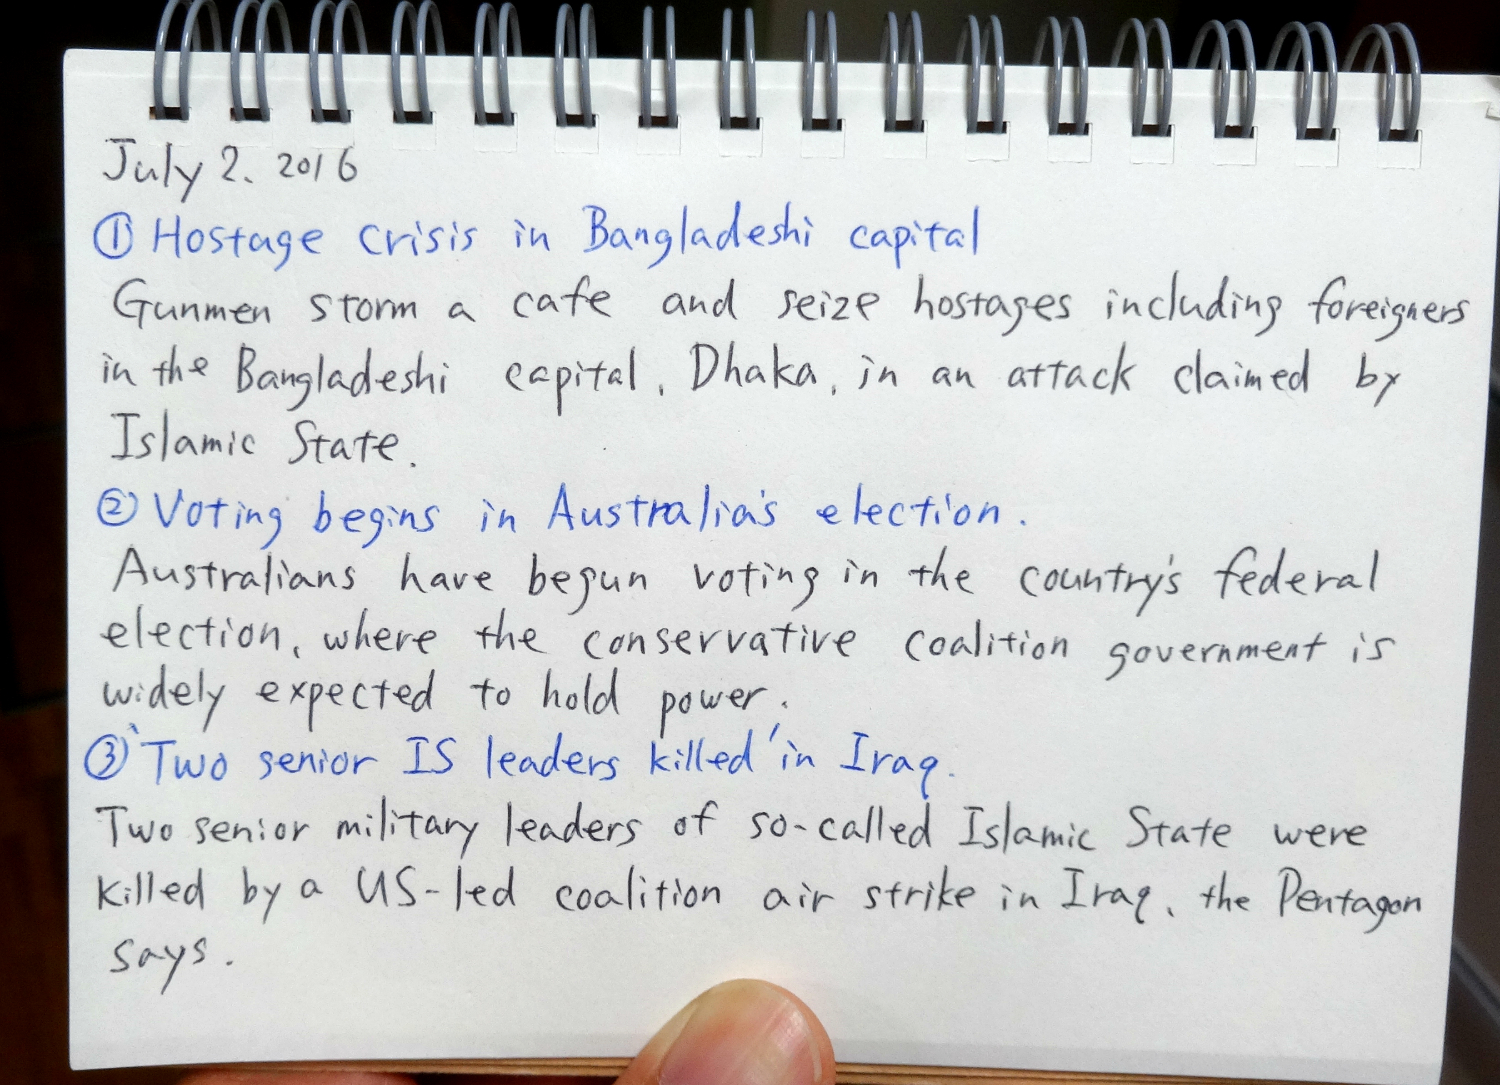 July 2. 2016
① Hostage crisis in Bangladeshi capital
Gunmen storm a cafe and seize hostages including foreigners
in the Bangladeshi capital, Dhaka, in an attack claimed by
Islamic State.
② Voting begins in Australia's election.
Australians have begun voting in the country's federal
election, where the conservative coalition government is
widely expected to hold power.
③ 'Two senior IS leaders killed' in Iraq.
Two senior military leaders of so-called Islamic State were
killed by a US-led coalition air strike in Iraq, the Pentagon
says.